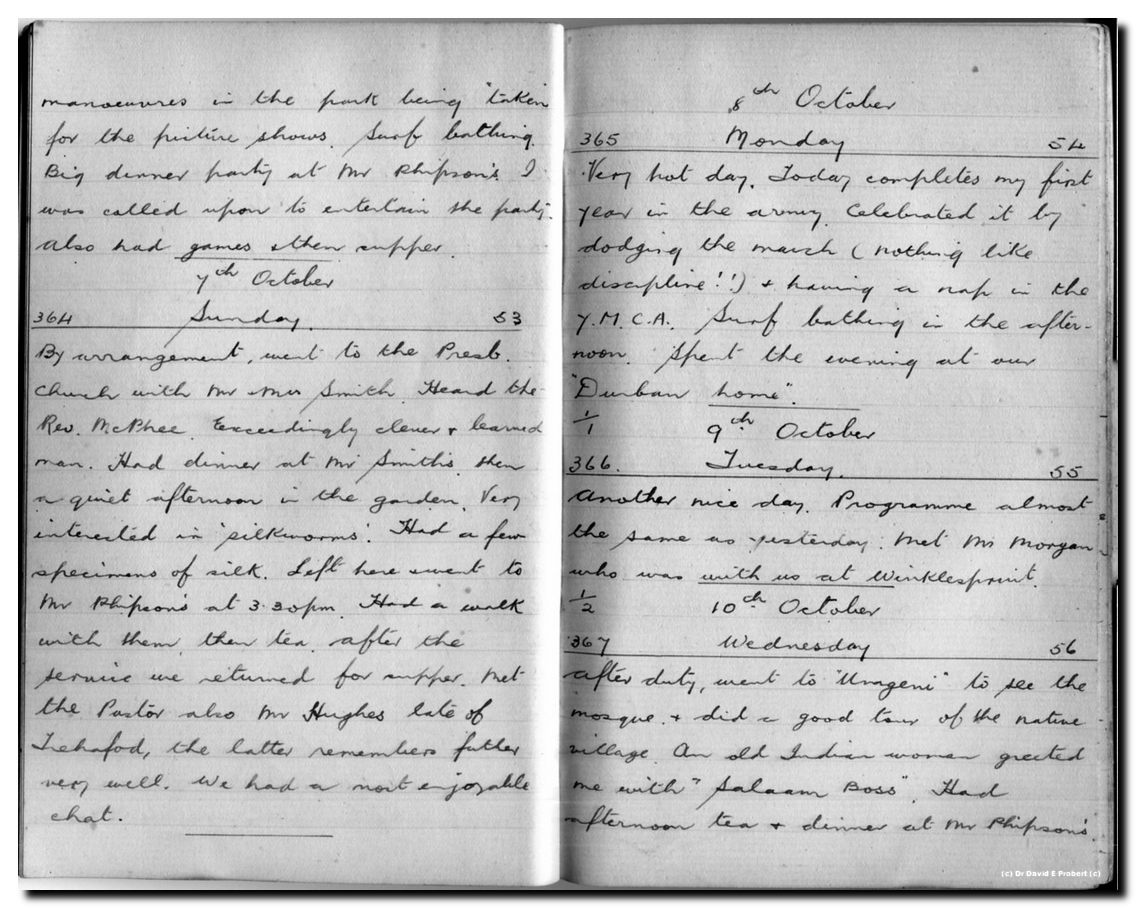 manoeuvres in the park being "taken
for the picture shows. Surf bathing.
Big dinner party at Mr Phipson's. I
was called upon to entertain the party.
Also had games & then supper.
7th October
364 Sunday. 53
By arrangement, went to the Presb.
Church with Mr & Mrs Smith. Heard the
Rev. McPhee. Exceedingly clever & learned
man. Had dinner at Mr Smith's, then
a quiet afternoon in the garden. Very
interested in 'silkworms'. Had a few
specimens of silk. Left here & went to
Mr Phipson's at 3.30pm. Had a walk
with them, then tea. After the
service we returned for supper. Met
the Pastor also Mr Hughes late of
Trehafod, the latter remembers father
very well. We had a most enjoyable
chat.
8th October
365 Monday 54
Very hot day. Today completes my first
year in the army. Celebrated it by
dodging the march (nothing like
discipline!!) & having a nap in the
Y.M.C.A. Surf bathing in the after-
noon. Spent the evening at our
"Durban home".
1/1 9th October
366. Tuesday. 55
Another nice day. Programme almost
the same as yesterday. Met Mr Morgan
who was with us at Winklespruit.
1/2 10th October
367 Wednesday 56
After duty, went to "Umgeni" to see the
mosque, & did a good tour of the native
village. An old Indian woman greeted
me with "Salaam Boss". Had
afternoon tea & dinner at Mr Phipson's.
(c) Dr David E Probert (c)